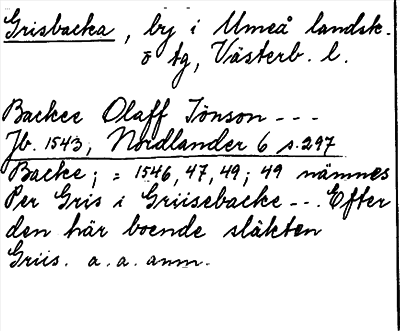 Grisbacka, by i Umeå landsk.
o tg, Västerb. l.
Backe Olaff Jönson ---
Jb. 1543, Nordlander 6 s. 297
Backe; = 1546, 47, 49; 49 nämnes
Per Gris i Griisebacke --. Efter
den här boende släkten
Griis. a. a. anm.